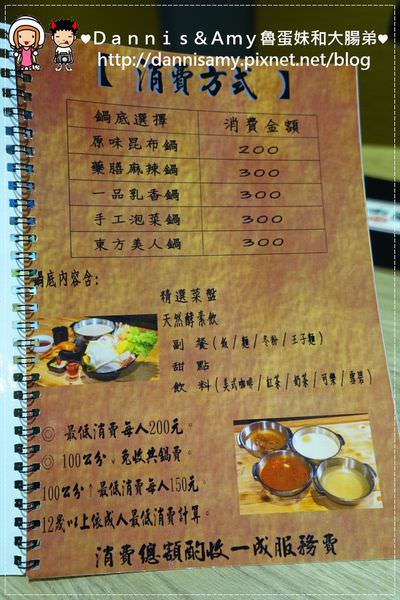 ♥Dannis&Amy魯蛋妹和大腸弟♥
http://dannisamy.pixnet.net/blog
【消費方式】
鍋底選擇 消費金額
原味昆布鍋 200
藥膳麻辣鍋 300
一品乳香鍋 300
手工泡菜鍋 300
東方美人鍋 300
鍋底內容含:
精選菜盤
天然酵素飲
副餐(飯/麵/冬粉/王子麵)
甜點
飲料(美式咖啡/紅茶/奶茶/可樂/雪碧)
◎ 最低消費每人200元。
◎ 100公分↓免收共鍋費。
100公分↑最低消費每人150元。
12歲以上依成人最低消費計算。
消費總額酌收一成服務費